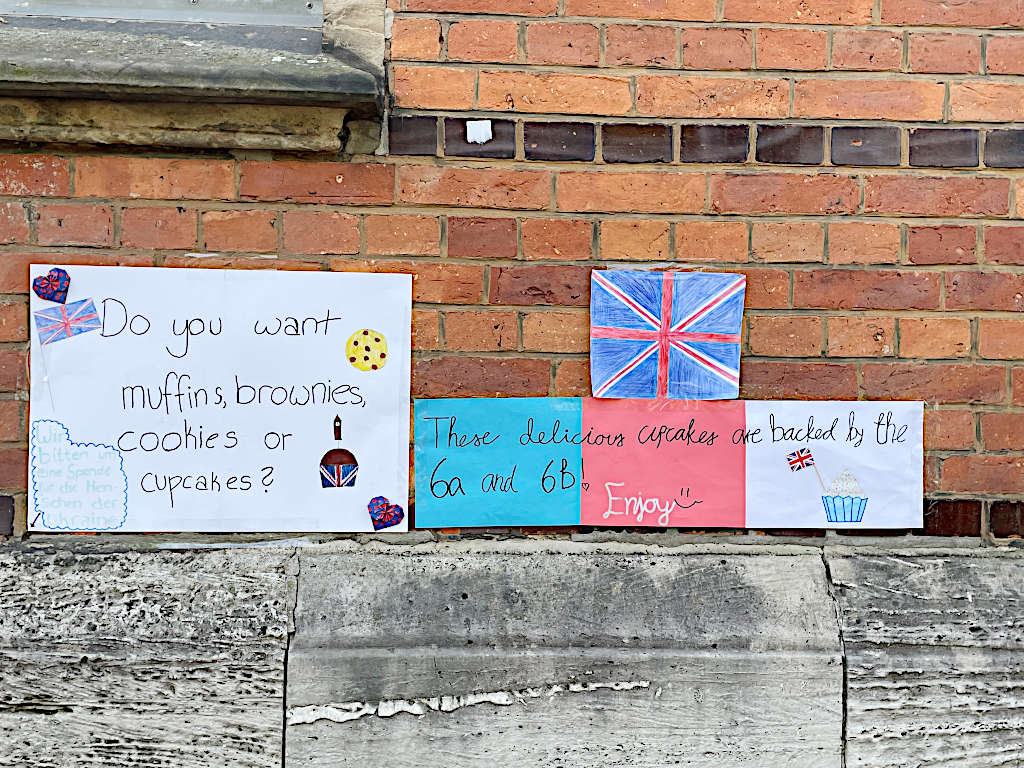 Do you want
muffins, brownies,
cookies or
cupcakes?
Wir
bitten um
eine Spende
für die Men-
schen der
Ukraine
These delicious cupcakes are backed by the
6a and 6B!
Enjoy